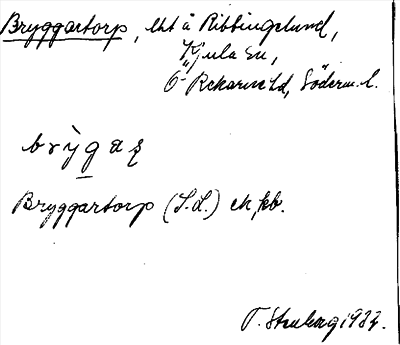 Bryggartorp, lht å Ribbingelund,
Kjula sn,
Ö Rekarne hd, Söderm. l.
brỳgaʂ
Bryggartorp (S.L.) ek, kb.
T. Struberg 1934.